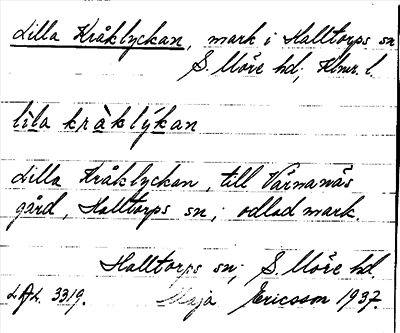 Lilla Kråklyckan, mark i Halltorps sn
S. Möre hd; Klmr. l.
lìla kràklýkan
Lilla Kråklyckan, till Värnanäs
gård, Halltorps sn; odlad mark.
Halltorps sn; S. Möre hd
LAL. 3319. Maja Ericsson 1937.